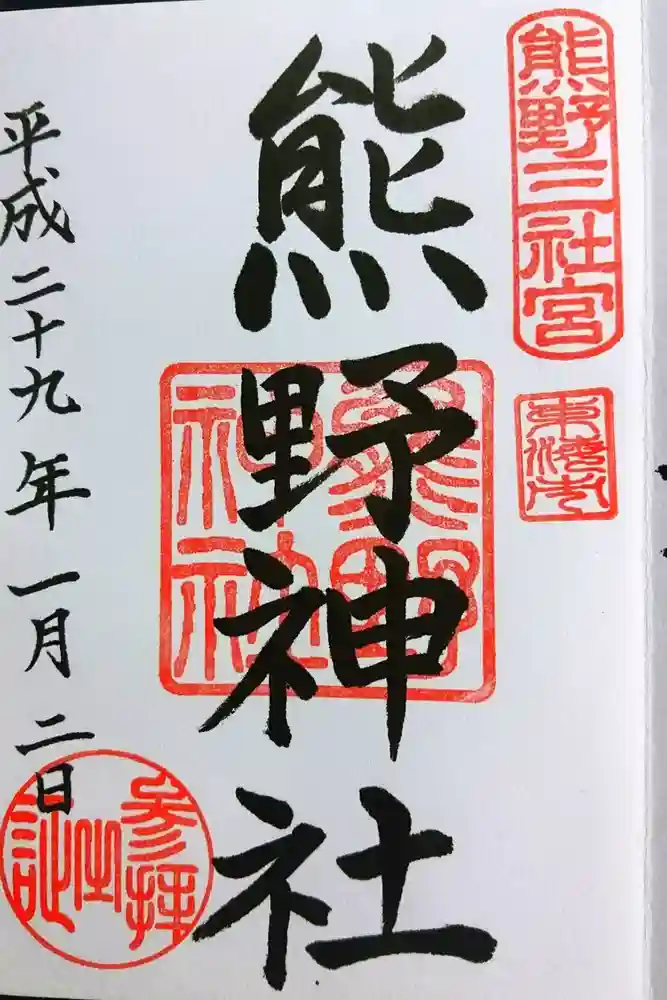 熊野三社宮
東海市
熊野神社
熊野
神社
平成二十九年一月二日
参拝
之
証